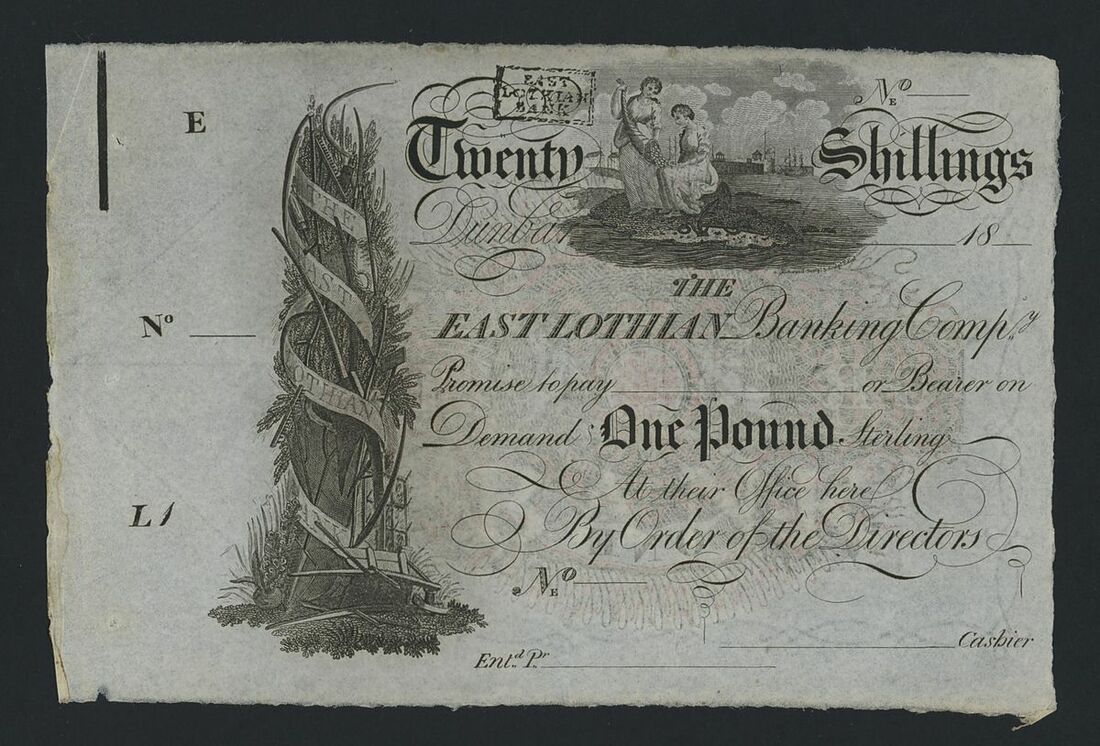 E
EAST
LOTHIAN
BANK
No
E
Twenty Shillings
Dunbar 18
THE
EAST LOTHIAN Banking Compy
No
Promise to pay or Bearer on
Demand One Pound Sterling
At their Office here
L1
By Order of the Directors
No
E
Cashier
Entd. Pr.
THE
EAST
LOTHIAN